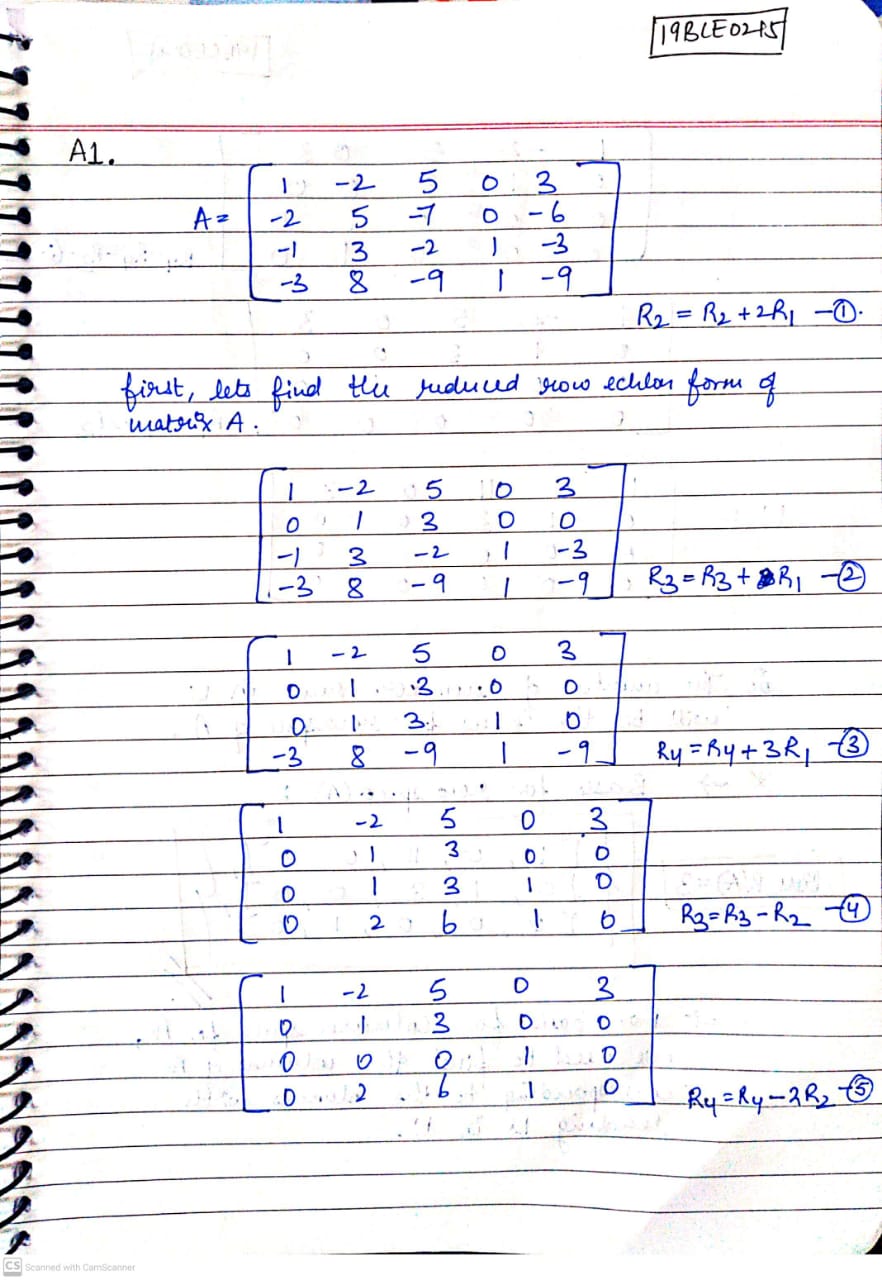 19BLE0215
A1.
1 -2 5 0 3
A = -2 5 -7 0 -6
-1 3 -2 1 -3
-3 8 -9 1 -9
R2 = R2 + 2R1 - ①.
first, lets find the reduced row echlon form of
matrix A.
1 -2 5 0 3
0 1 3 0 0
-1 3 -2 1 -3
-3 8 -9 1 -9 R3 = R3 + R1 - ②
1 -2 5 0 3
0 1 3 0 0
0 1 3 1 0
-3 8 -9 1 -9 R4 = R4 + 3R1 - ③
1 -2 5 0 3
0 1 3 0 0
0 1 3 1 0
0 2 6 1 0 R3 = R3 - R2 - ④
1 -2 5 0 3
0 1 3 0 0
0 0 0 1 0
0 2 6 1 0 R4 = R4 - 2R2 - ⑤
CS Scanned with CamScanner